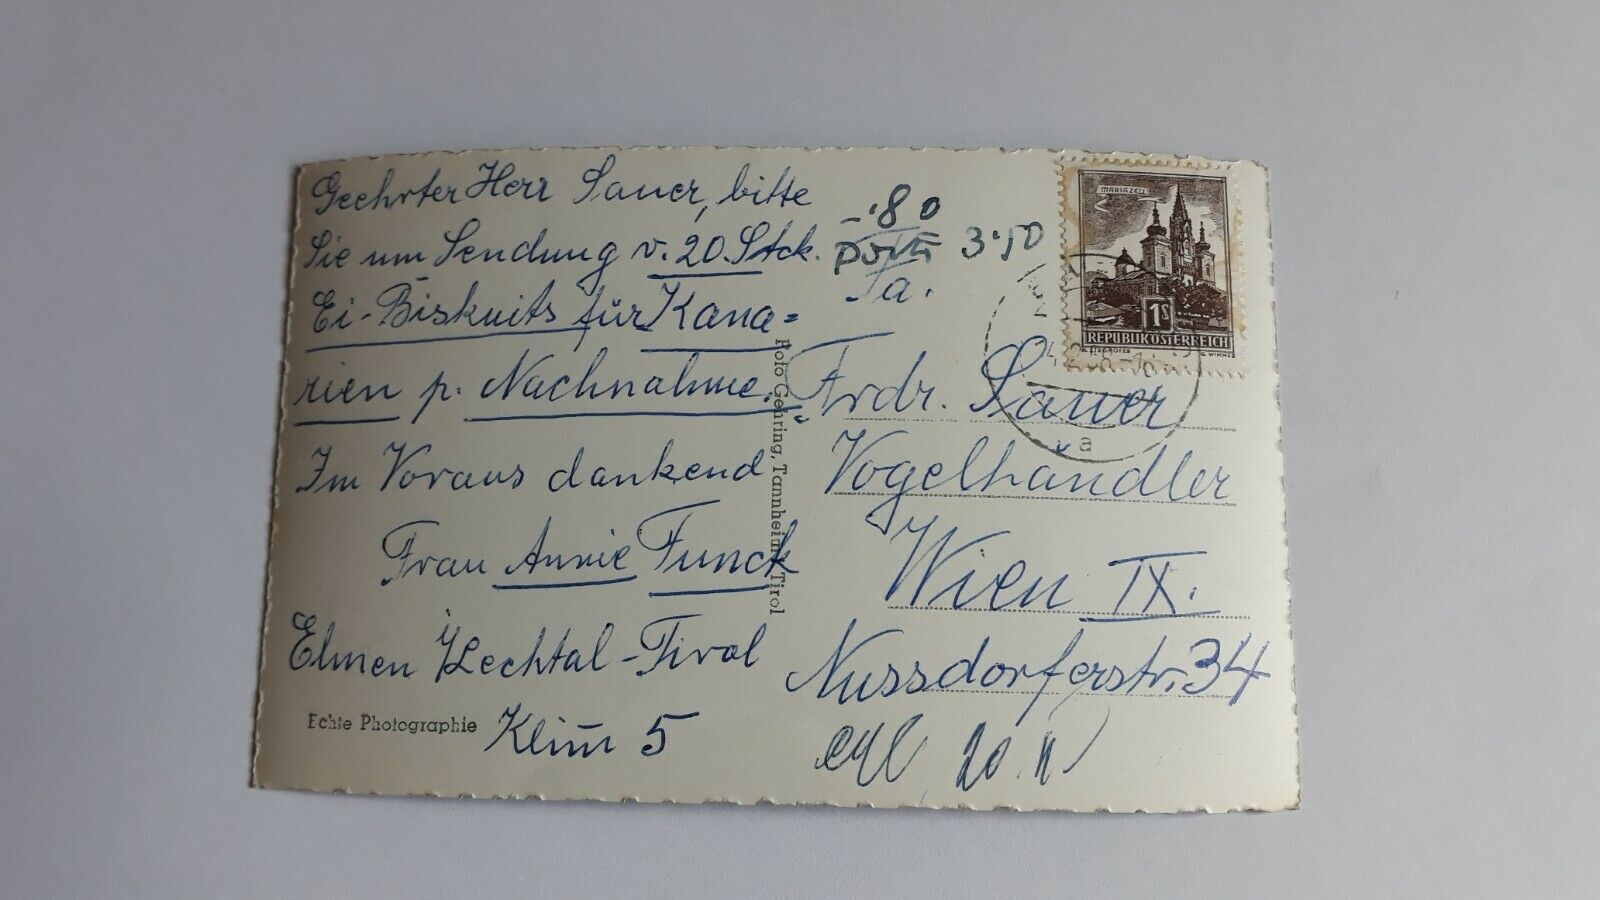 Geehrter Herr Sauer, bitte
Sie um Sendung v. 20 Stck.
Ei-Biskuits für Kana=
rien p. Nachnahme.
Im Voraus dankend
Frau Annie Funck
Elmen Lechtal-Tirol
Klim 5
Echte Photographie
Foto Gehring, Tannheim, Tirol
-.80
Porto 3.50
MARIAZELL
1S
REPUBLIK ÖSTERREICH
Frdr. Sauer
Vogelhandler
Wien IX.
Nussdorferstr. 34